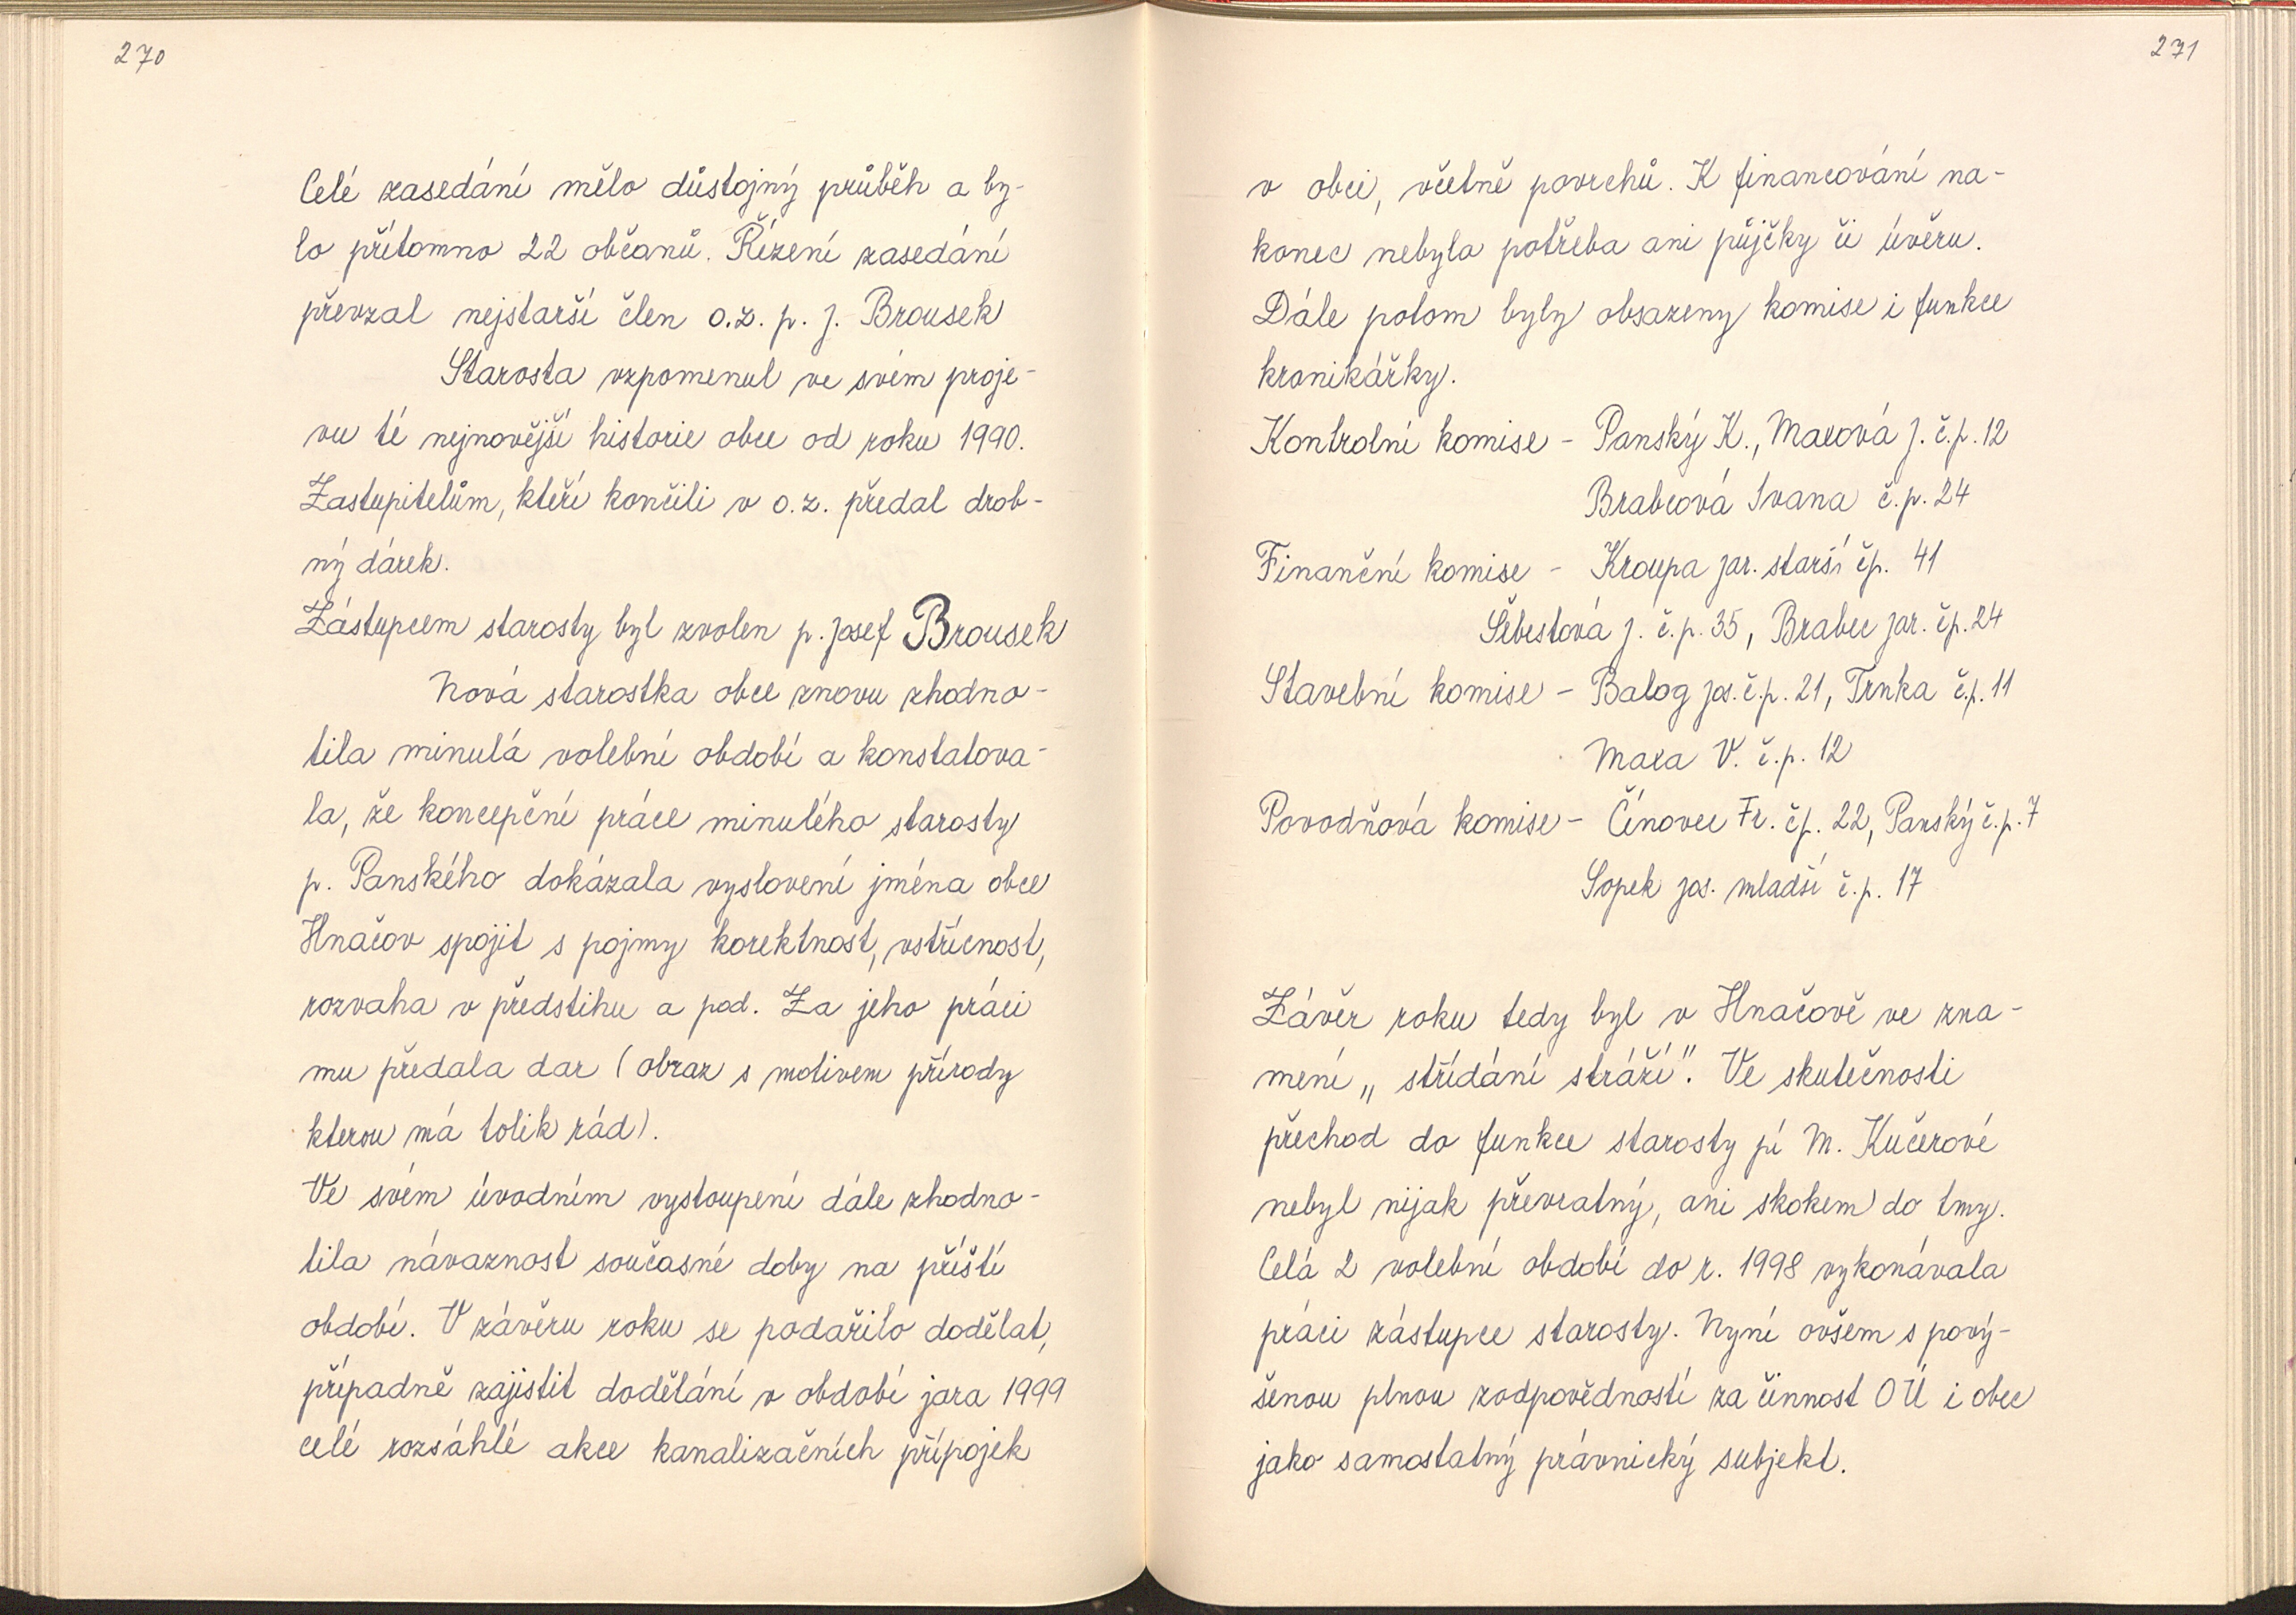 270
Celé zasedání mělo důstojný průběh a by-
lo přítomno 22 občanů. Řízení zasedání
převzal nejstarší člen o.z. p. J. Brousek
Starosta vzpomenul ve svém proje-
vu té nejnovější historie obce od roku 1990.
Zastupitelům, kteří končili v o.z. předal drob-
ný dárek.
Zástupcem starosty byl zvolen p. Josef Brousek
Nová starostka obce znovu zhodno-
tila minulá volební období a konstatova-
la, že koncepční práce minulého starosty
p. Panského dokázala vyslovení jména obce
Hnačov spojit s pojmy korektnost, vstřícnost,
rozvaha v předstihu a pod. Za jeho práci
mu předala dar (obraz s motivem přírody
kterou má tolik rád).
Ve svém úvodním vystoupení dále zhodno-
tila návaznost současné doby na příští
období. V závěru roku se podařilo dodělat,
případně zajistit dodělání v období jara 1999
celé rozsáhlé akce kanalizačních přípojek
271
v obci, včetně povrchů. K financování na-
konec nebyla potřeba ani půjčky či úvěru.
Dále potom byly obsazeny komise i funkce
kronikářky.
Kontrolní komise - Panský K., Maxová J. č.p. 12
Brabcová Ivana č.p. 24
Finanční komise - Kroupa Jar. starší čp. 41
Šebestová J. č.p. 35, Brabec Jar. čp. 24
Stavební komise - Balog Jos. č.p. 21, Trnka č.p. 11
Maxa V. č.p. 12
Povodňová komise - Čínovec Fr. čp. 22, Panský č.p. 7
Sopek Jos. mladší č.p. 17
Závěr roku tedy byl v Hnačově ve zna-
mení „střídání stráží". Ve skutečnosti
přechod do funkce starosty pí M. Kučerové
nebyl nijak převratný, ani skokem do tmy.
Celá 2 volební období do r. 1998 vykonávala
práci zástupce starosty. Nyní ovšem s pový-
šenou plnou zodpovědností za činnost OÚ i obec
jako samostatný právnický subjekt.